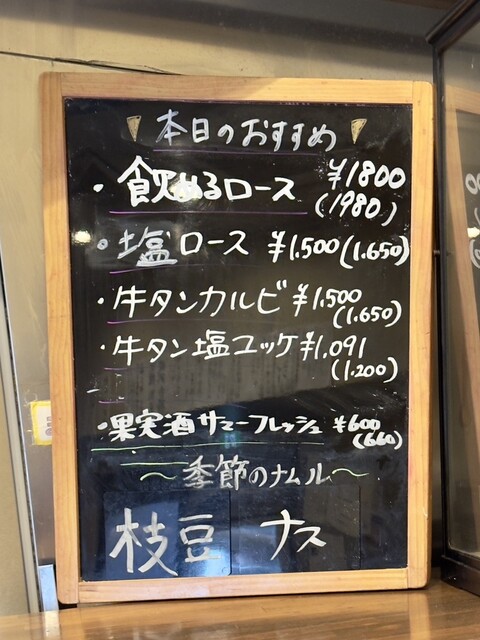 本日のおすすめ
・飲めるロース ¥1800
(1980)
・塩ロース ¥1.500(1.650)
・牛タンカルビ ¥1.500
(1.650)
・牛タン塩ユッケ ¥1.091
(1.200)
・果実酒サマーフレッシュ ¥600
(660)
〜季節のナムル〜
枝豆 ナス